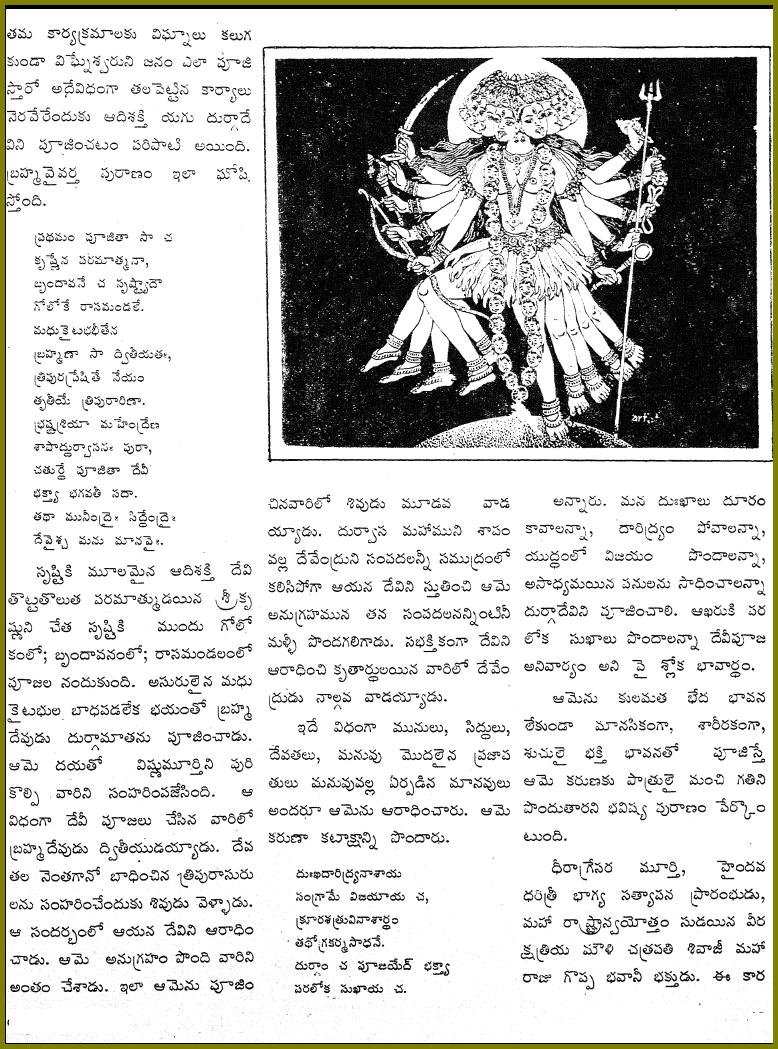 తమ కార్యక్రమాలకు విఘ్నాలు కలుగ
కుండా విఘ్నేశ్వరుని జనం ఎలా పూజి
స్తారో అదేవిధంగా తలపెట్టిన కార్యాలు
నెరవేరేందుకు ఆదిశక్తి యగు దుర్గాదే
విని పూజించటం పరిపాటి అయింది.
బ్రహ్మవైవర్త పురాణం ఇలా ఘోషి
స్తోంది.
ప్రథమం పూజితా సా చ
కృష్ణేన పరమాత్మనా,
బృందావనే చ సృష్ట్యాదౌ
గోలోకే రాసమండలే.
మధుకైటభభీతేన
బ్రహ్మణా సా ద్వితీయతః,
త్రిపురప్రేషితే నేయం
తృతీయే త్రిపురారిణా.
భ్రష్టశ్రియా మహేంద్రేణ
శాపాద్దుర్వాసనః పురా,
చతుర్థే పూజితా దేవీ
భక్త్యా భగవతీ సదా.
తథా మునీంద్రైః సిద్ధేంద్రైః
దేవైశ్చ మను మానవైః.
సృష్టికి మూలమైన ఆదిశక్తి దేవి
తొట్టతొలుత పరమాత్ముడయిన శ్రీకృ
ష్ణుని చేత సృష్టికి ముందు గోలో
కంలో; బృందావనంలో; రాసమండలంలో
పూజల నందుకుంది. అసురులైన మధు
కైటభుల బాధపడలేక భయంతో బ్రహ్మ
దేవుడు దుర్గామాతను పూజించాడు.
ఆమె దయతో విష్ణుమూర్తిని పురి
కొల్పి వారిని సంహరింపజేసింది. ఆ
విధంగా దేవీ పూజలు చేసిన వారిలో
బ్రహ్మదేవుడు ద్వితీయుడయ్యాడు. దేవ
తల నెంతగానో బాధించిన త్రిపురాసురు
లను సంహరించేందుకు శివుడు వెళ్ళాడు.
ఆ సందర్భంలో ఆయన దేవిని ఆరాధిం
చాడు. ఆమె అనుగ్రహం పొంది వారిని
అంతం చేశాడు. ఇలా ఆమెను పూజిం
చినవారిలో శివుడు మూడవ వాడ
య్యాడు. దుర్వాస మహాముని శాపం
వల్ల దేవేంద్రుని సంపదలన్నీ సముద్రంలో
కలిసిపోగా ఆయన దేవిని స్తుతించి ఆమె
అనుగ్రహమున తన సంపదలనన్నింటినీ
మళ్ళీ పొందగలిగాడు. సభక్తికంగా దేవిని
ఆరాధించి కృతార్థులయిన వారిలో దేవేం
ద్రుడు నాల్గవ వాడయ్యాడు.
ఇదే విధంగా మునులు, సిద్ధులు,
దేవతలు, మనువు మొదలైన ప్రజాప
తులు మనువువల్ల ఏర్పడిన మానవులు
అందరూ ఆమెను ఆరాధించారు. ఆమె
కరుణా కటాక్షాన్ని పొందారు.
దుఃఖదారిద్ర్యనాశాయ
సంగ్రామే విజయాయ చ,
క్రూరశత్రువినాశార్థం
తథోగ్రకర్మసాధనే.
దుర్గాం చ పూజయేద్ భక్త్యా
పరలోక సుఖాయ చ.
అన్నారు. మన దుఃఖాలు దూరం
కావాలన్నా, దారిద్ర్యం పోవాలన్నా,
యుద్ధంలో విజయం పొందాలన్నా,
అసాధ్యమయిన పనులను సాధించాలన్నా
దుర్గాదేవిని పూజించాలి. ఆఖరుకి పర
లోక సుఖాలు పొందాలన్నా దేవీపూజ
అనివార్యం అని పై శ్లోక భావార్థం.
ఆమెను కులమత భేద భావన
లేకుండా మానసికంగా, శారీరకంగా,
శుచులై భక్తి భావనతో పూజిస్తే
ఆమె కరుణకు పాత్రులై మంచి గతిని
పొందుతారని భవిష్య పురాణం పేర్కొం
టుంది.
ధీరాగ్రేసర మూర్తి, హైందవ
ధరిత్రీ భాగ్య సత్యాపన ప్రారంభుడు,
మహా రాష్ట్రాన్వయోత్తం సుడయిన వీర
క్షత్రియ మౌళి ఛత్రపతి శివాజీ మహా
రాజు గొప్ప భవానీ భక్తుడు. ఈ కార